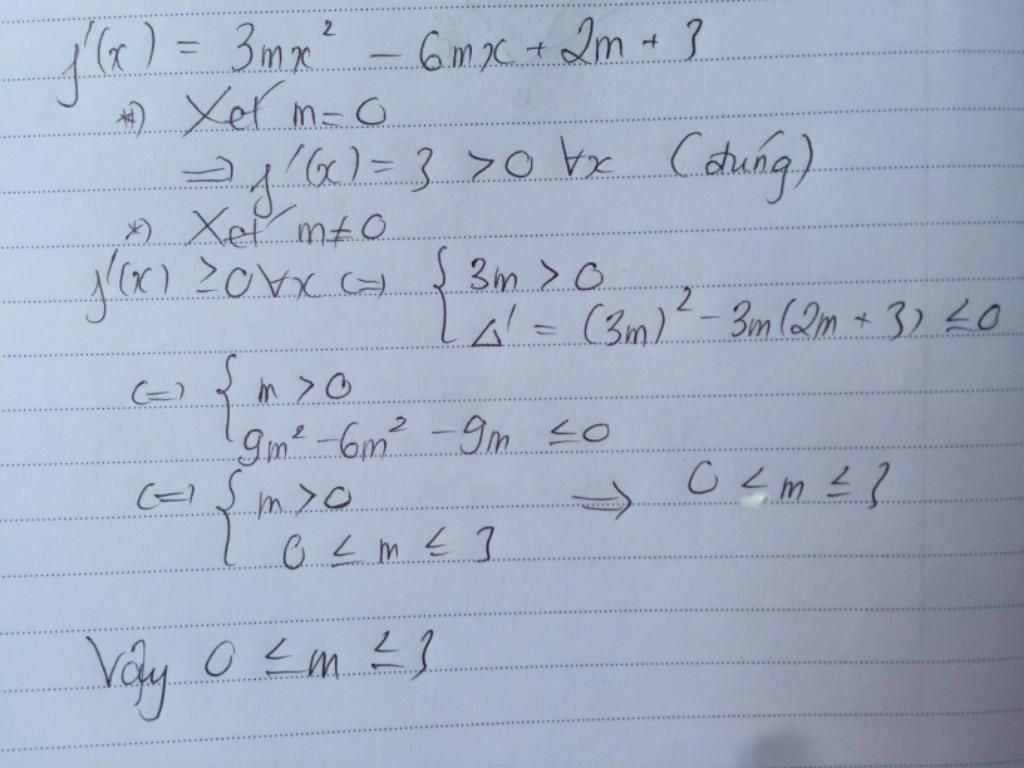 f'(x) = 3mx² - 6mx + 2m + 3
*) Xét m = 0
⇒ f'(x) = 3 > 0 ∀x (đúng)
*) Xét m ≠ 0
f'(x) ≥ 0 ∀x ⇔ { 3m > 0
Δ' = (3m)² - 3m(2m + 3) ≤ 0
⇔ { m > 0
9m² - 6m² - 9m ≤ 0
⇔ { m > 0 ⇒ 0 < m ≤ 3
0 ≤ m ≤ 3
Vậy 0 ≤ m ≤ 3